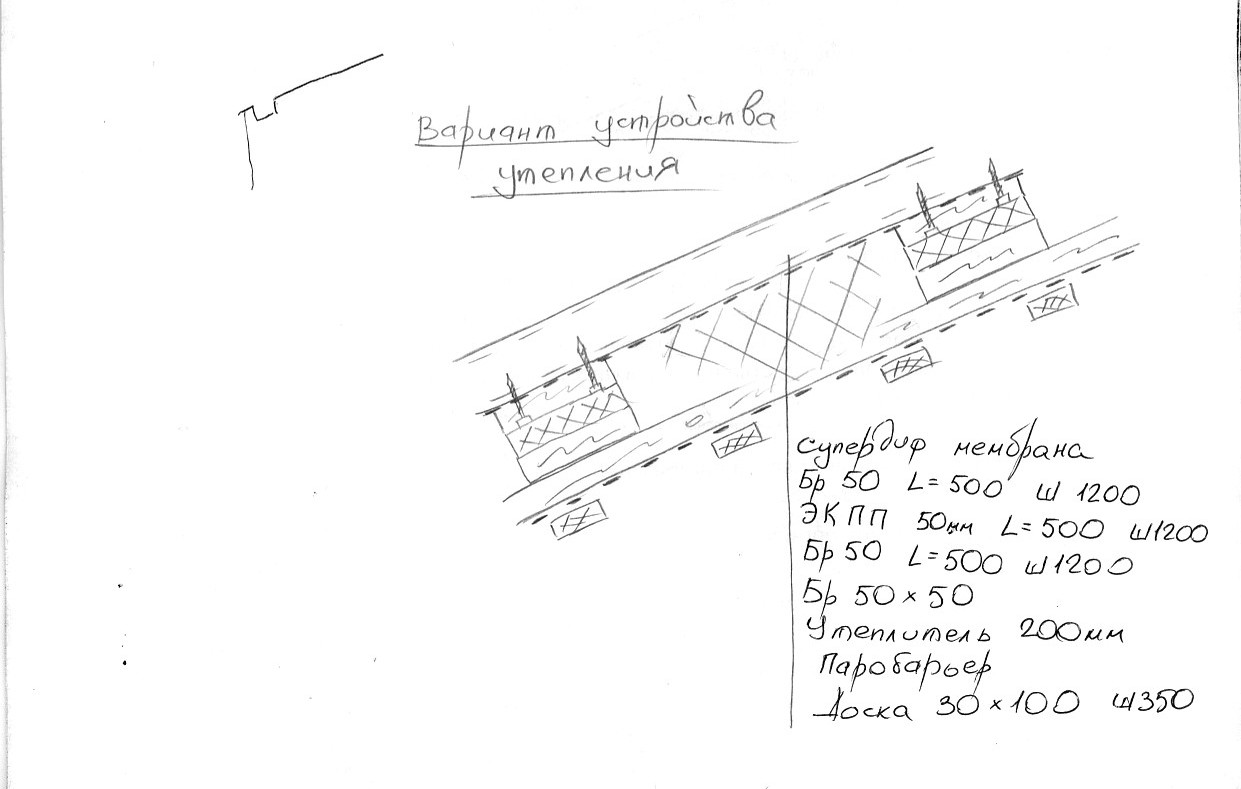 Вариант устройства
утепления
Супердиф мембрана
Бр 50 L=500 ш 1200
ЭКПП 50мм L=500 ш1200
Бр 50 L=500 ш1200
Бр 50×50
Утеплитель 200мм
Паробарьер
Доска 30×100 ш350